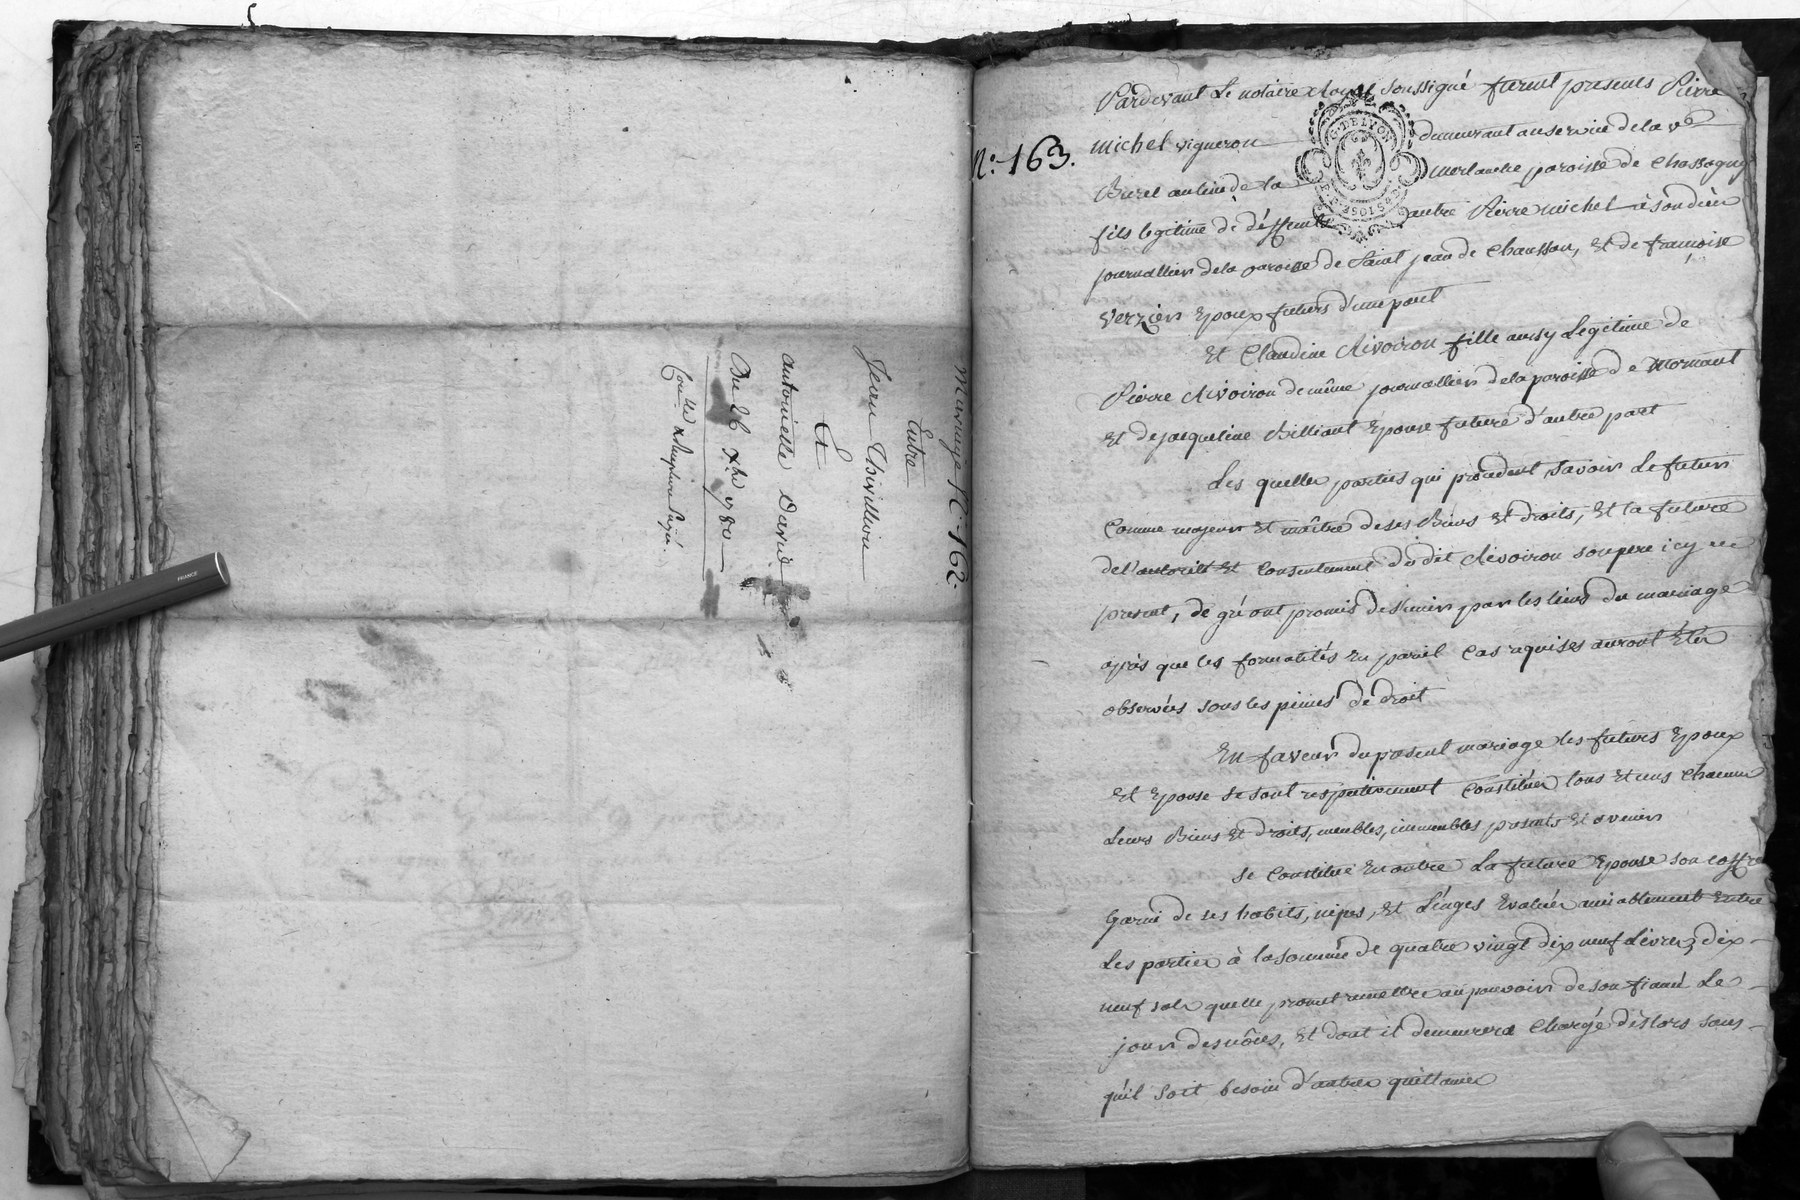 Mariage N.° 162.
Entre
Jean Thivillion
Et
antoinette David
Du 26 xbre 1780
Con.lle & Scripture payé.
FRANCE
N.° 163.
Pardevant Le notaire Royal soussigné furent presents Pierre
michel vigneron demeurant au service de la ve
Burel au lieu de la merlanche paroisse de Chassagny
fils legitime de déffunts autre Pierre michel à son décès
journallier de la paroisse de Saint jean de Chaussan, et de françoise
Verzier Epoux futurs d'une part
Et Claudine Rivoiron fille aussy Legitime de
Pierre Rivoiron de même journallier de la paroisse de Mornant
Et de jacqueline Billiant Epouse future d'autre part
Les quelles parties qui procedent savoir Le futur
Comme majeur Et maître de ses Biens Et droits, Et la future
de l'autorité Et Consentement du dit Rivoiron son pere icy
present, de gré ont promis de s'unir par les liens du mariage
après que les formalités En pareil Cas requises auront Eté
observées sous les peines de droit
En faveur du present mariage les futurs Epoux
Et Epouse se sont respectivement Constitués tous Et uns chacuns
Leurs Biens Et droits, meubles, immeubles presents Et avenir
se Constitue En outre La future Epouse son coffre
Garni de ses habits, nipes, Et Linges Evalués amiablement Entre
Les parties à la somme de quatre vingt dix neuf Livres, dix
neuf sols quelle promet remettre au pouvoir de son fiancé Le
jour des nôces, Et dont il demeurera Chargé dèslors sans
qu'il soit besoin d'autre quittance
G. DE LYON